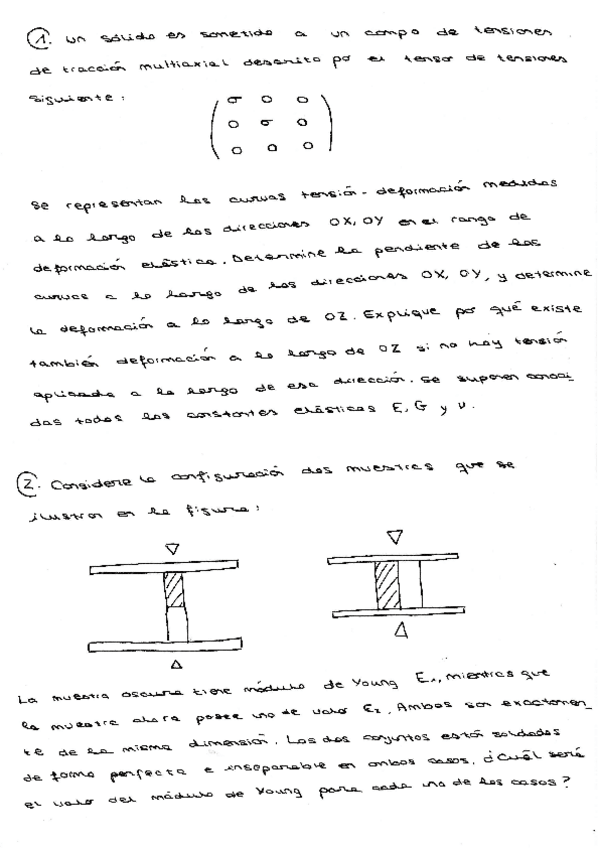 1. Un sólido es sometido a un campo de tensiones
de tracción multiaxial descrito po el tensor de tensiones
siguiente:
σ 0 0
0 σ 0
0 0 0
Se representan las curvas tensión-deformación medidas
a lo largo de las direcciones OX, OY en el rango de
deformación elástica. Determine la pendiente de las
curvas a lo largo de las direcciones OX, OY, y determine
la deformación a lo largo de OZ. Explique por qué existe
también deformación a lo largo de OZ si no hay tensión
aplicada a lo largo de esa dirección. Se suponen conoci_
das todas las constantes elásticas E, G y ν.
2. Considere la configuración dos muestras que se
ilustran en la figura:
La muestra oscura tiene módulo de Young E₁, mientras que
la muestra clara posee uno de valor E₂. Ambas son exactamen_
te de la misma dimensión. Los dos conjuntos están soldados
de forma perfecta e inseparable en ambos casos. ¿Cuál será
el valor del módulo de Young para cada uno de los casos?